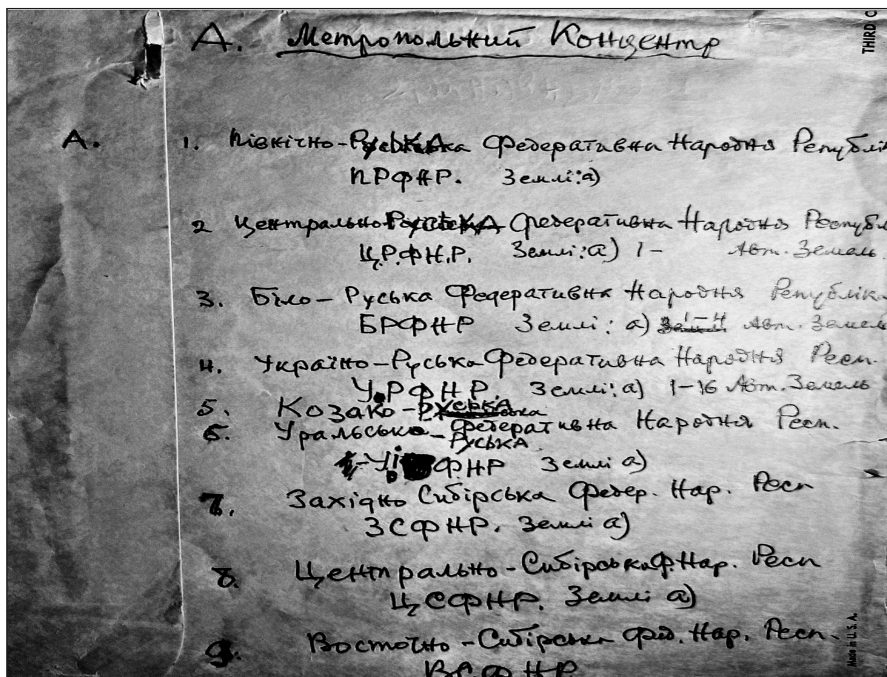 А. Метропольний Концентр
THIRD C
А.
1. Північно-Руська Федеративна Народня Республік
ПРФНР. Землі: а)
2 Центрально-Руська Федеративна Народня Республ
Ц.Р.Ф.Н.Р. Землі: а) 1- Авт. Земель
3. Біло-Руська Федеративна Народня Республік
БРФНР Землі: а) 1-4 Авт. Земель
4. Україно-Руська Федеративна Народня Респ.
У.РФНР. Землі: а) 1-16 Авт. Земель
5. Козако-Руська
6. Уральсько-Руська Федеративна Народня Респ.
ФНР Землі а)
7. Західно Сибірська Федер. Нар. Респ
ЗСФНР. Землі а)
8. Центрально-Сибірська Ф Нар. Респ
ЦСФНР. Землі а)
9. Восточно-Сибірська Фед. Нар. Респ.
ВСФНР
Made in U.S.A.